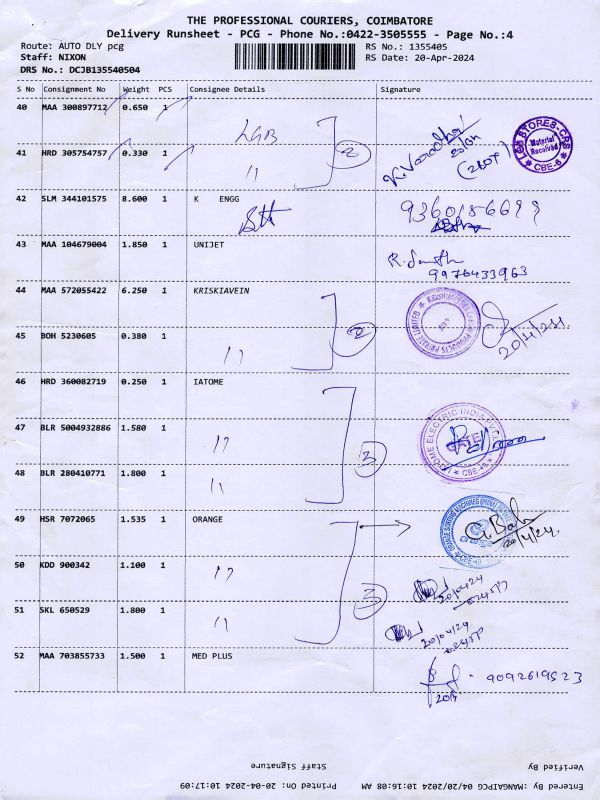 THE PROFESSIONAL COURIERS, COIMBATORE
Delivery Runsheet - PCG - Phone No.:0422-3505555 - Page No.:4
Route: AUTO DLY pcg RS No.: 1355405
Staff: NIXON RS Date: 20-Apr-2024
DRS No.: DCJB135540504
S No Consignment No Weight PCS Consignee Details Signature
40 MAA 300897712 0.650 1
LGB
41 HRD 305754757 0.330 1 11 2
LGB STORES-CRS
Material Received
CBE-6
42 SLM 344101575 8.600 1 K ENGG
43 MAA 104679004 1.850 1 UNIJET
9976433963
44 MAA 572055422 6.250 1 KRISKIAVEIN
45 BOH 5230605 0.380 1 11 2
20/4/24
46 HRD 360082719 0.250 1 IATOME
47 BLR 5004932886 1.580 1 11 3
48 BLR 280410771 1.800 1 11
49 HSR 7072065 1.535 1 ORANGE
20/4/24
50 KDD 900342 1.100 1 11 3
20/04/24
51 SKL 650529 1.800 1 11
20/04/24
52 MAA 703855733 1.500 1 MED PLUS
9092619523
Staff Signature Verified By
Printed On: 20-04-2024 10:17:09 Entered By: MANGAIPCG 04/20/2024 10:16:08 AM